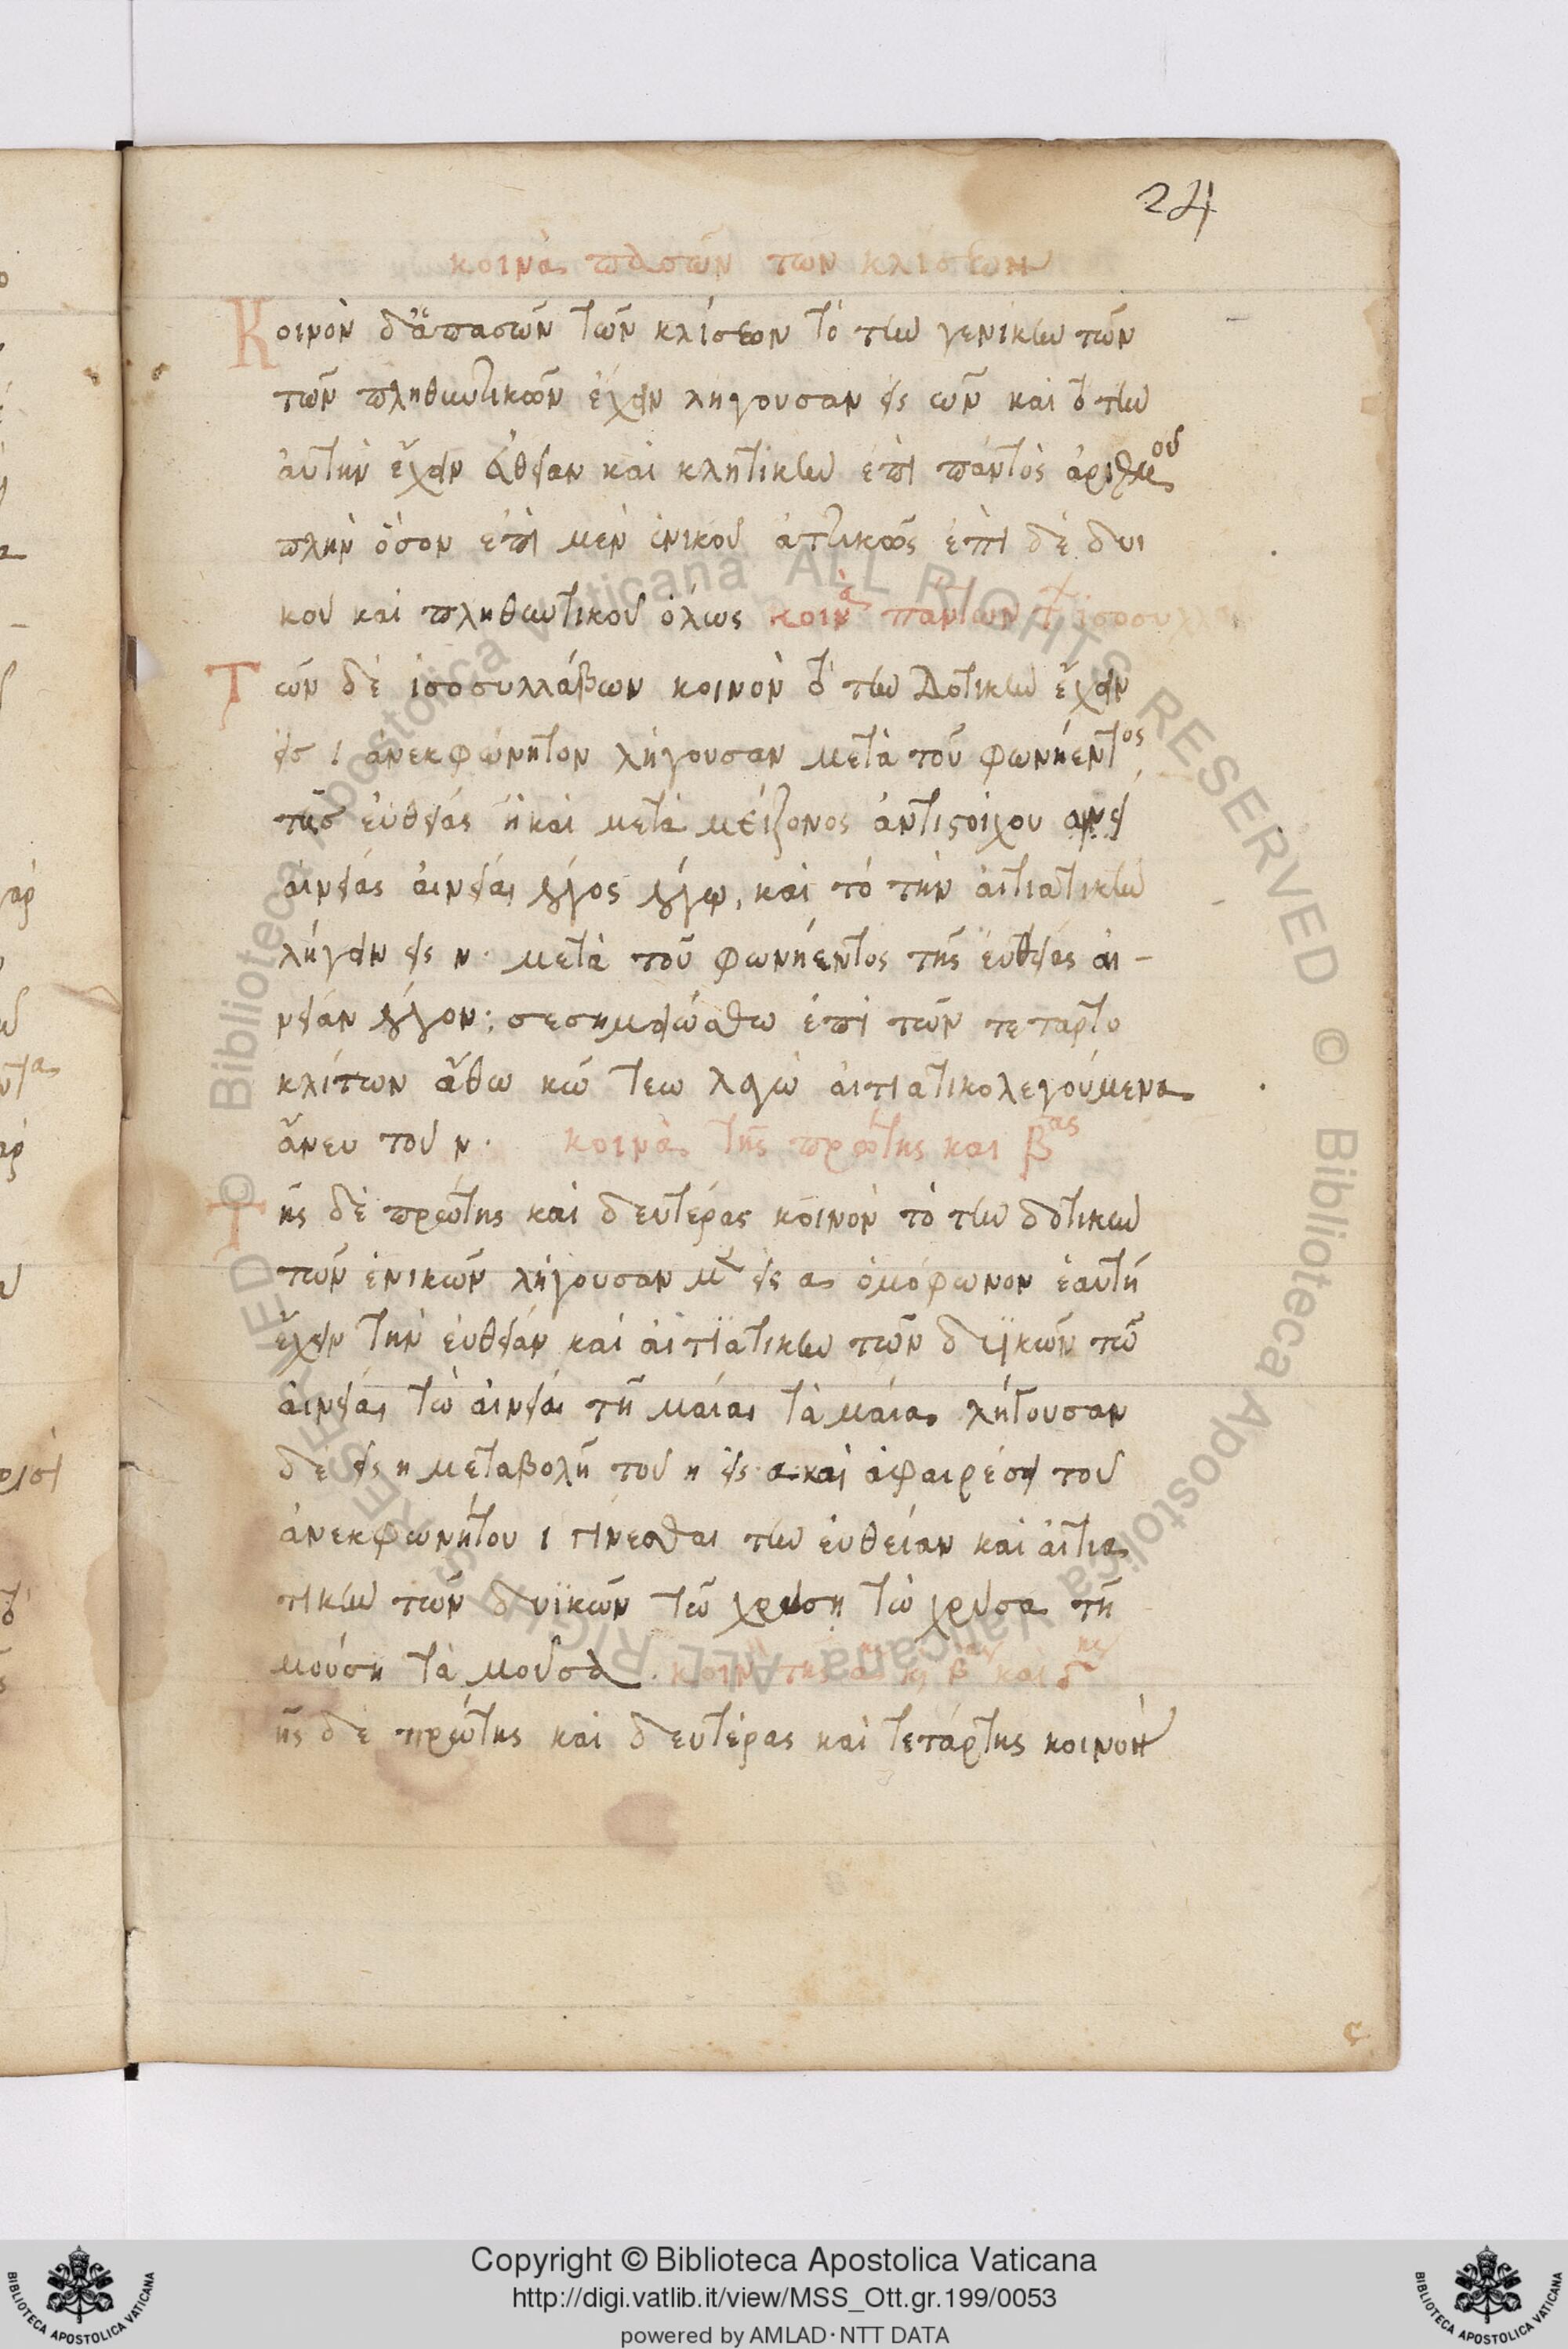 24
κοινὰ πασῶν τῶν κλίσεων
Κοινὸν δ' ἁπασῶν τῶν κλίσεων τὸ τὴν γενικὴν τῶν
τῶν πληθυντικῶν ἔχειν λήγουσαν εἰς ων καὶ τὸ τὴν
αὐτὴν ἔχειν εὐθεῖαν καὶ κλητικὴν ἐπὶ παντὸς ἀριθμοῦ
πλὴν ὅσον ἐπὶ μὲν ἑνικοῦ ἀττικῶς ἐπὶ δὲ δυι
κοῦ καὶ πληθυντικοῦ ὅλως κοινὰ πάντων τῶν ἰσοσυλλά
Τῶν δὲ ἰσοσυλλάβων κοινὸν τὸ τὴν δοτικὴν ἔχειν
εἰς ι ἀνεκφώνητον λήγουσαν μετὰ τοῦ φωνήεντος
τῆς εὐθείας ἢ καὶ μετὰ μείζονος ἀντιστοίχου
αἰνείας αἰνείαι λόγος λόγω, καὶ τὸ τὴν αἰτιατικὴν
λήγειν εἰς ν. μετὰ τοῦ φωνήεντος τῆς εὐθείας αἰ-
νείαν λόγον: σεσημειώσθω ἐπὶ τῶν τεταρτο
κλίτων ἄθω κῶ τεω λαγὼ αἰτιατικο λεγούμενα
ἄνευ τοῦ ν. κοινὰ τῆς πρώτης καὶ βας
Τῆς δὲ πρώτης καὶ δευτέρας κοινὸν τὸ τὴν δοτικὴν
τῶν ἑνικῶν λήγουσαν μὲν εἰς α ὁμόφωνον ἑαυτῆ
ἔχειν τὴν εὐθεῖαν καὶ αἰτϊατικὴν τῶν δυϊκῶν τῶ
αἰνείαι τὼ αἰνείαι τῆ μαίαι τὰ μαία λήγουσαν
δὲ εἰς η μεταβολῆ τοῦ η εἰς α καὶ ἀφαιρέσει τοῦ
ἀνεκφωνήτου ι γίνεσθαι τὴν εὐθείαν καὶ αἰτια
τικὴν τῶν δυϊκῶν τῶ χρύση τὼ χρύσα τῆ
μούση τὰ μούσα. κοιν τῆς αης καὶ βας καὶ δης
ῆς δὲ πρώτης καὶ δευτέρας καὶ τετάρτης κοινὸν
Copyright © Biblioteca Apostolica Vaticana
http://digi.vatlib.it/view/MSS_Ott.gr.199/0053
powered by AMLAD·NTT DATA
BIBLIOTECA APOSTOLICA VATICANA
BIBLIOTECA APOSTOLICA VATICANA
© Biblioteca Apostolica Vaticana ALL RIGHTS RESERVED © Biblioteca Apostolica Vaticana ALL RIGHTS RESERVED